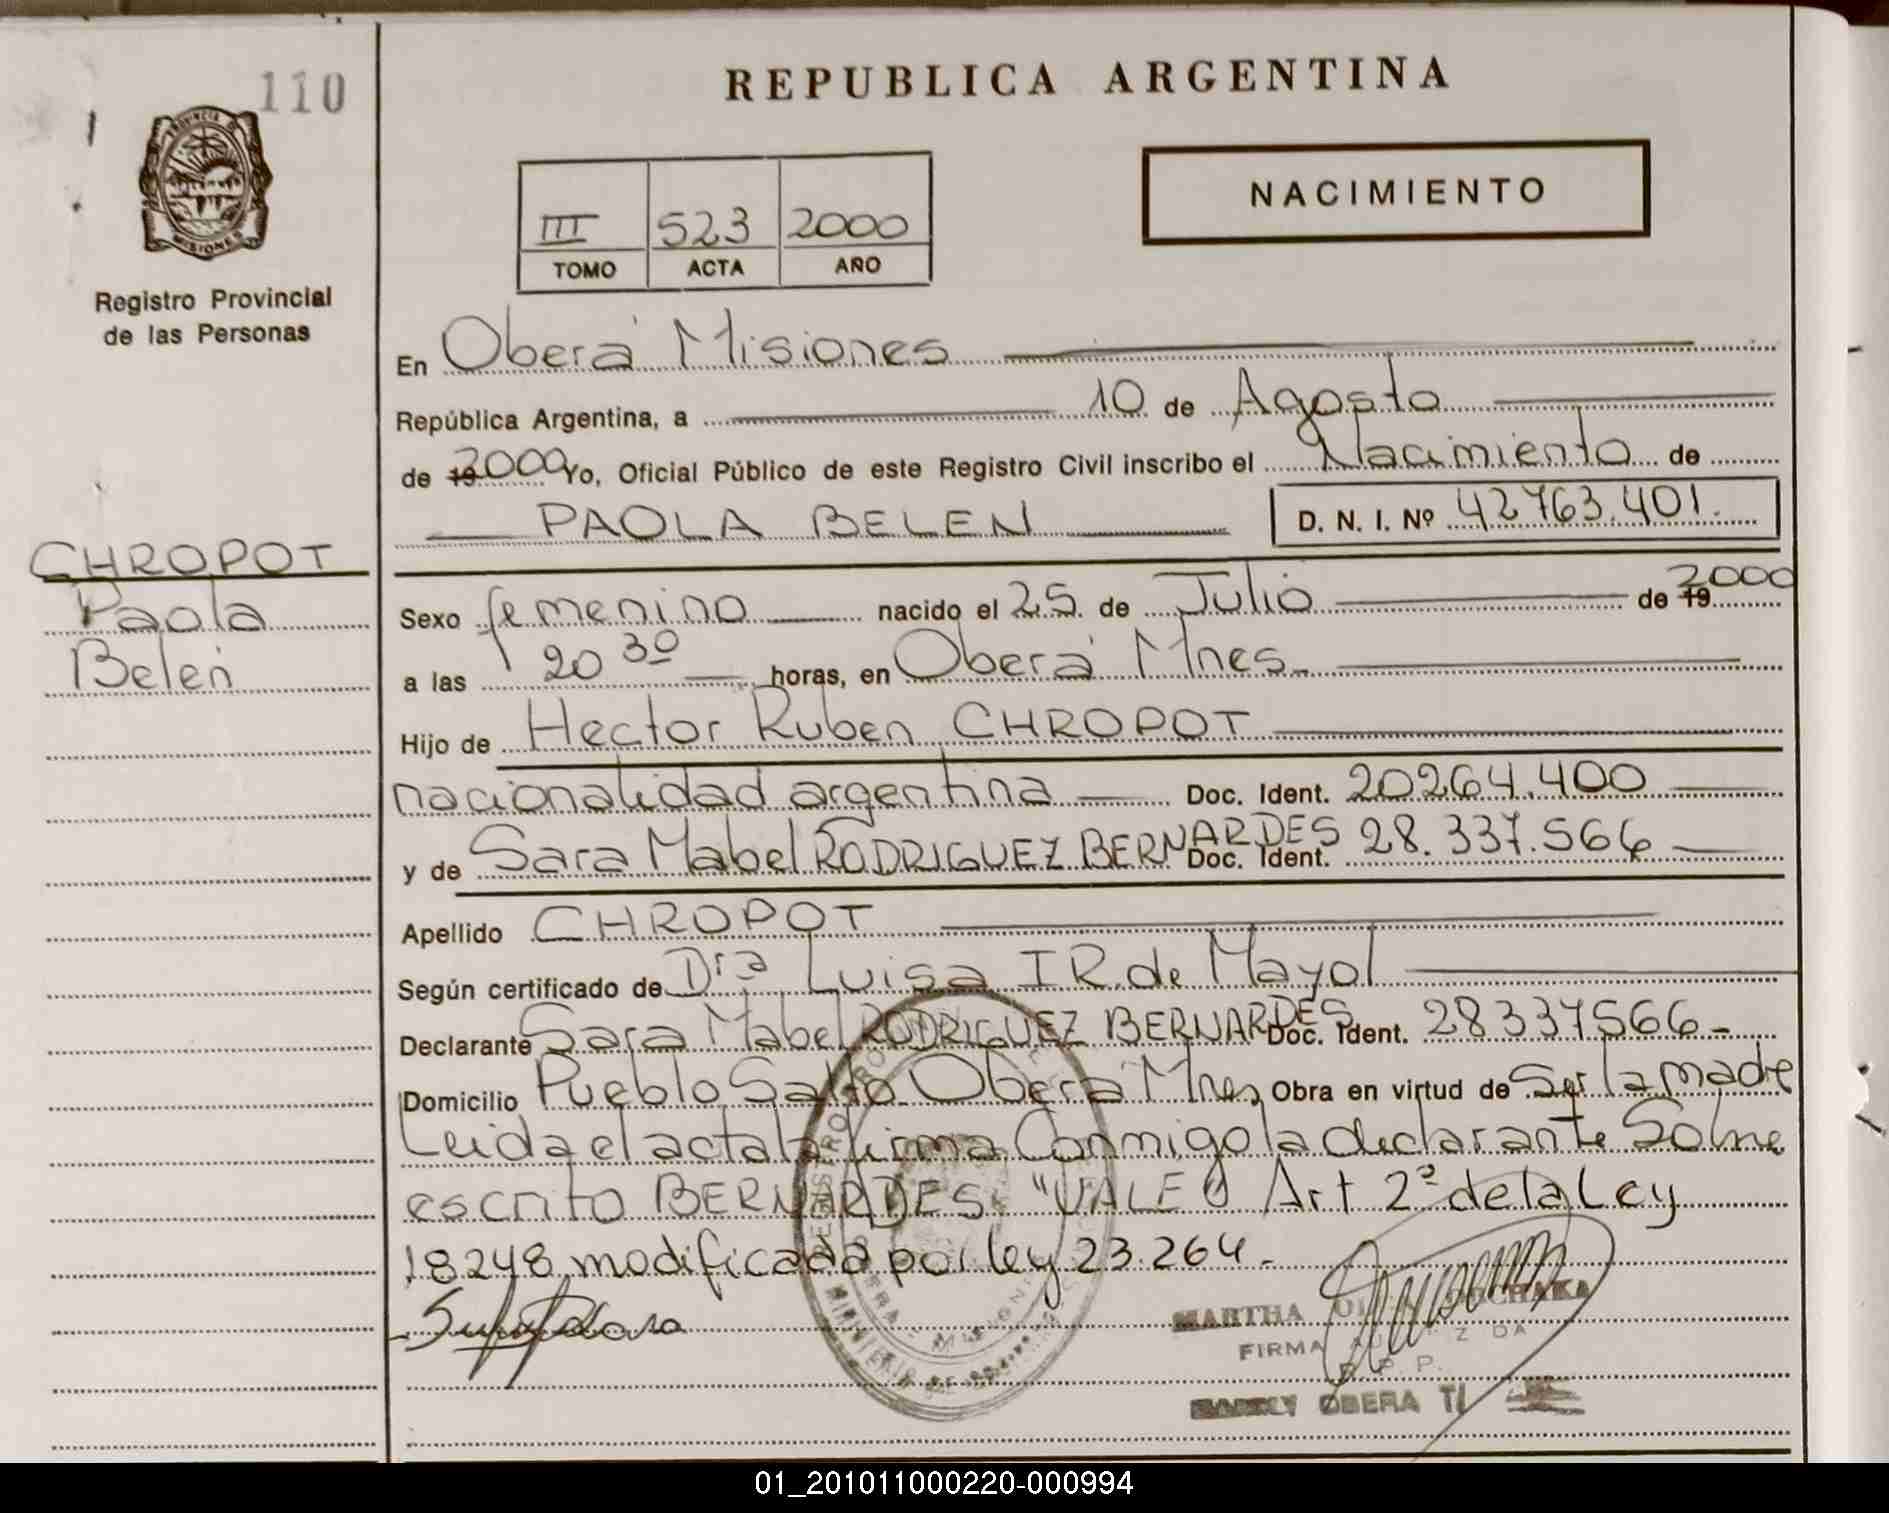 110
PROVINCIA D
MISIONES
Registro Provincial
de las Personas
CHROPOT
Paola
Belen
REPUBLICA ARGENTINA
NACIMIENTO
III 523 2000
TOMO ACTA AÑO
En Oberá Misiones
República Argentina, a 10 de Agosto
de 19 2000 Yo, Oficial Público de este Registro Civil inscribo el Nacimiento de
PAOLA BELEN D. N. I. Nº 42763.401.
Sexo femenino nacido el 25 de Julio de 19 2000
a las 20 30 horas, en Oberá Mnes.
Hijo de Hector Ruben CHROPOT
nacionalidad argentina Doc. Ident. 20264.400
y de Sara Mabel RODRIGUEZ BERNARDES Doc. Ident. 28.337.566
Apellido CHROPOT
Según certificado de Dra Luisa I R. de Mayol
Declarante Sara Mabel RODRIGUEZ BERNARDES Doc. Ident. 28337566-
Domicilio Pueblo Salto Oberá Mnes, Obra en virtud de Ser la madre
Leida el acta la firma Conmigo la declarante Sobre
escrito BERNARDES. "VALE" Art 2º de la Ley
18248 modificada por ley 23.264.-
MARTHA
FIRMA
R. P. P.
OBERA
01_201011000220-000994